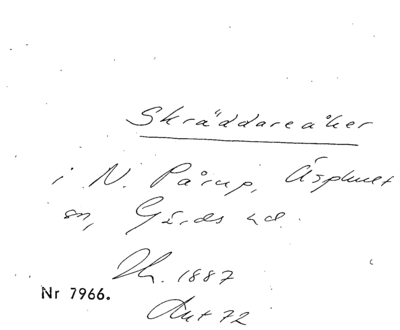 Skräddareåker
i N. Pårup, Äsphult
sn, Gärds hd.
1887
Nr 7966.
72